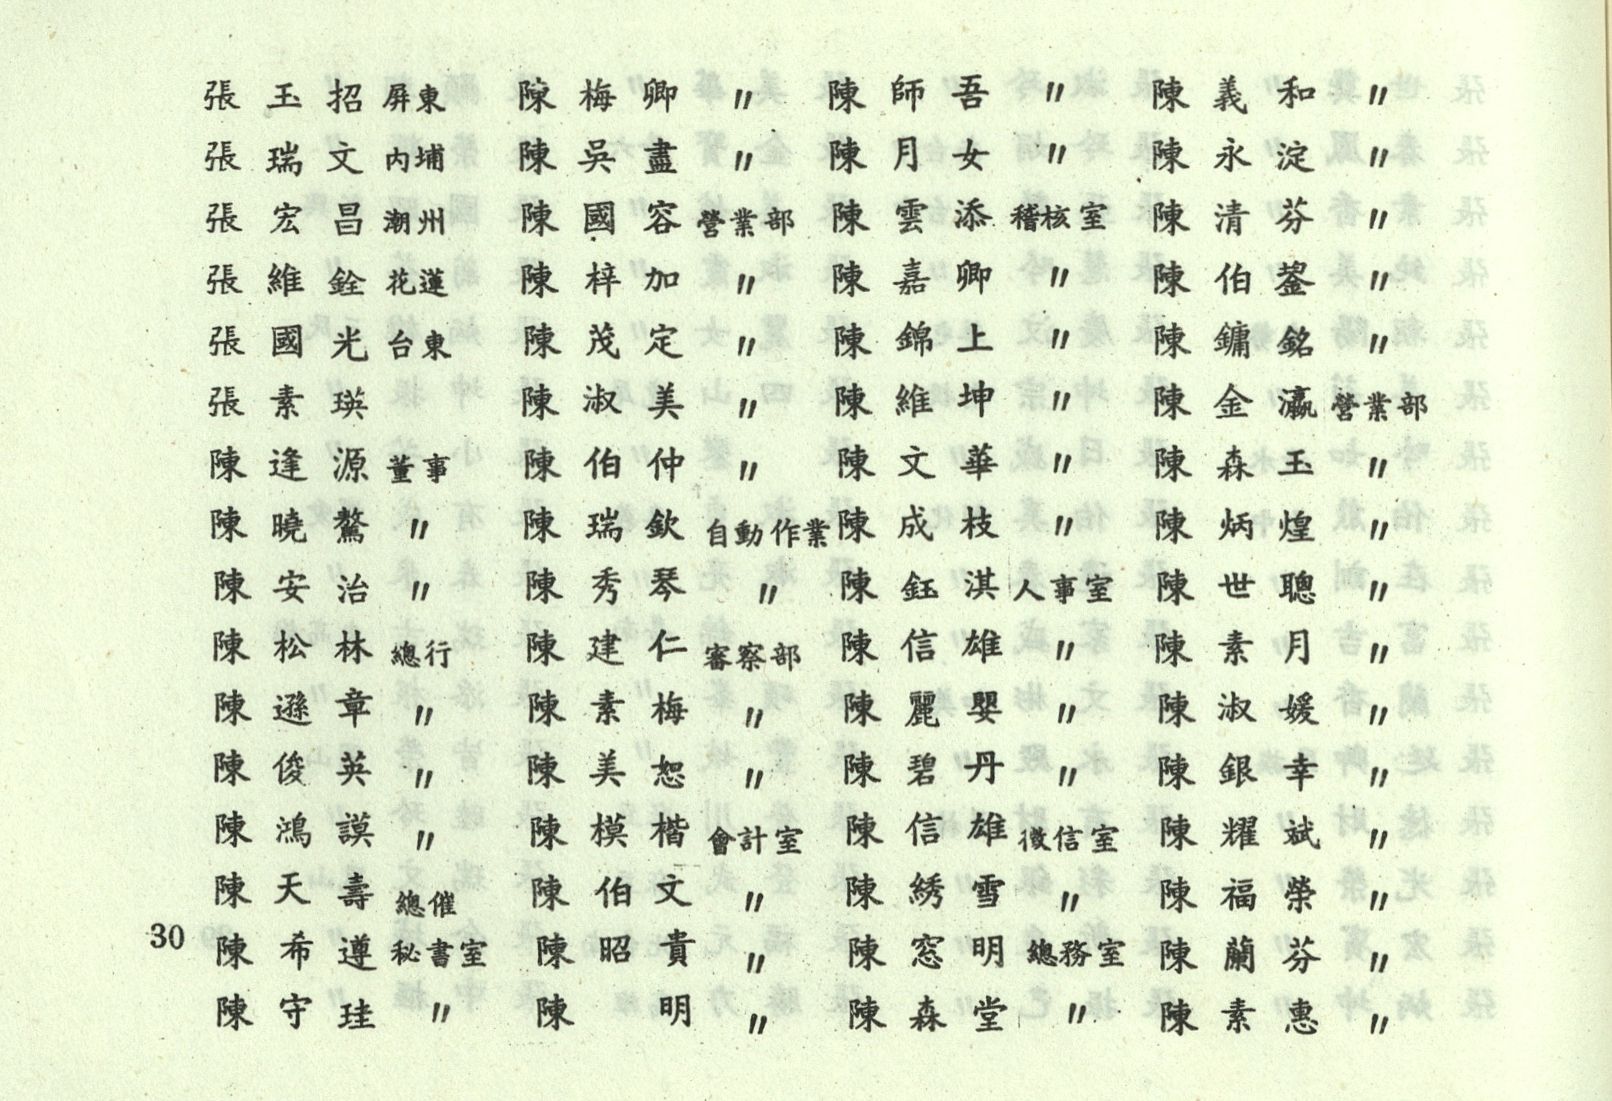 張玉招 屏東
張瑞文 內埔
張宏昌 潮州
張維銓 花蓮
張國光 台東
張素瑛
陳逢源 董事
陳曉鰲 〃
陳安治 〃
陳松林 總行
陳遜章 〃
陳俊英 〃
陳鴻謨 〃
陳天壽 總催
陳希遵 秘書室
陳守珪 〃
陳梅卿 〃
陳吳盡 〃
陳國容 營業部
陳梓加 〃
陳茂定 〃
陳淑美 〃
陳伯仲 〃
陳瑞欽 自動作業
陳秀琴 〃
陳建仁 審察部
陳素梅 〃
陳美恕 〃
陳模楷 會計室
陳伯文 〃
陳昭貴 〃
陳明 〃
陳師吾 〃
陳月女 〃
陳雲添 稽核室
陳嘉卿 〃
陳錦上 〃
陳維坤 〃
陳文華 〃
陳成枝 〃
陳鈺淇 人事室
陳信雄 〃
陳麗嬰 〃
陳碧丹 〃
陳信雄 徵信室
陳綉雪 〃
陳窓明 總務室
陳森堂 〃
陳義和 〃
陳永淀 〃
陳清芬 〃
陳伯鋆 〃
陳鏞銘 〃
陳金瀛 營業部
陳森玉 〃
陳炳煌 〃
陳世聰 〃
陳素月 〃
陳淑媛 〃
陳銀幸 〃
陳耀斌 〃
陳福榮 〃
陳蘭芬 〃
陳素惠 〃
30